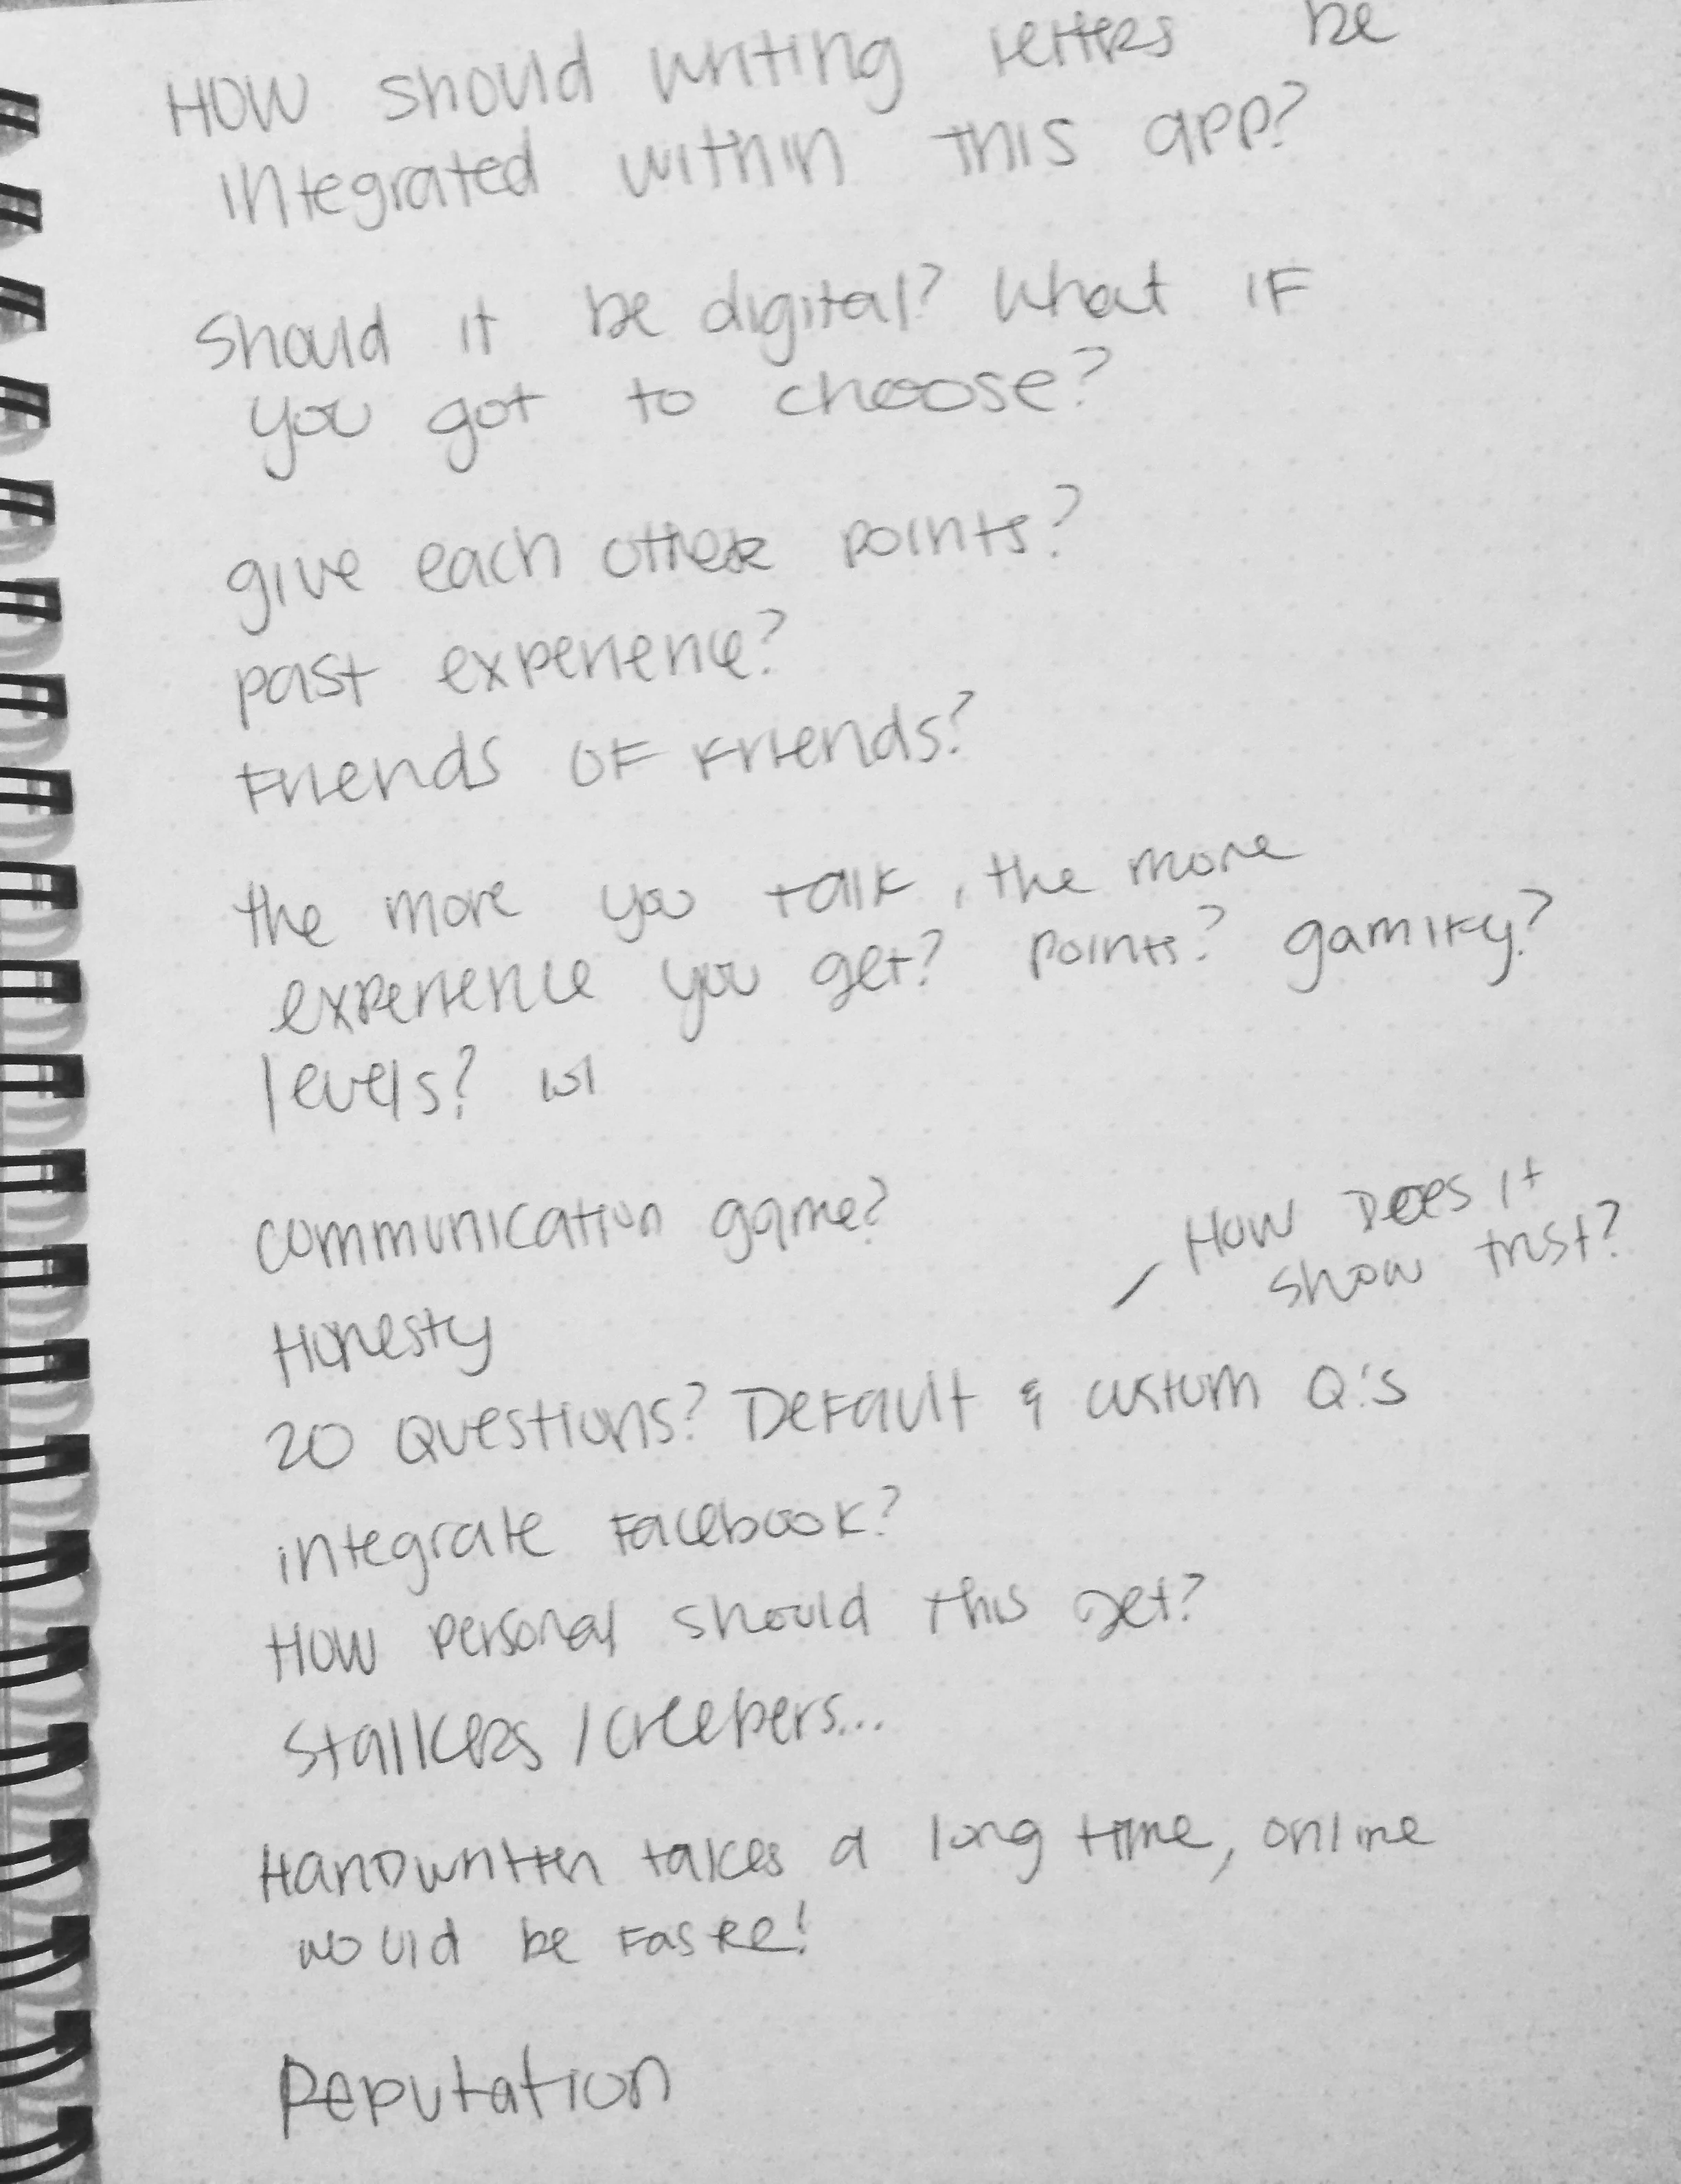 How should writing letters be
integrated within this app?
Should it be digital? What if
you got to choose?
give each other points?
past experience?
Friends of Friends?
the more you talk, the more
experience you get? points? gamify?
levels? lol
communication game?
How Does it
show trust?
Honesty
20 Questions? Default & custom Q's
integrate Facebook?
How personal should this get?
Stalkers / creepers...
Handwritten takes a long time, online
would be faster!
Reputation